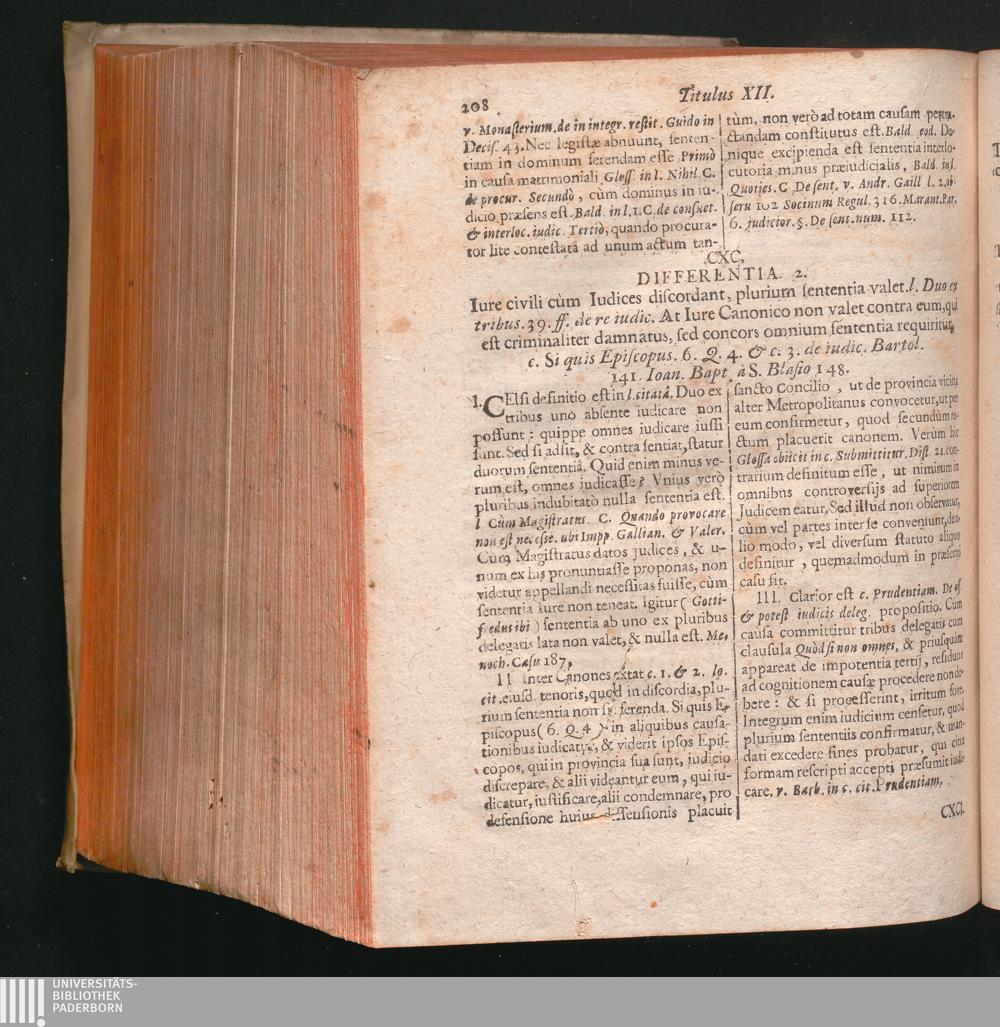 208
Titulus XII.
v. Monaſterium. de in integr. reſtit. Guido in
Deciſ. 43. Nec legiſtæ abnuunt, ſenten-
tiam in dominum ferendam eſſe Primò
in cauſa matrimoniali Gloſſ. in l. Nihil C.
de procur. Secundò, cùm dominus in iu-
dicio præſens eſt. Bald. in l. 1. C. de conſuet.
& interloc. iudic. Tertiò, quando procura-
tor lite conteſtatâ ad unum actum tan-
tùm, non verò ad totam cauſam pertra-
ctandam conſtitutus eſt. Bald. eod. De-
nique excipienda eſt ſententia interlo-
cutoria minus præiudicialis, Bald. in l.
Quoties. C. De ſent. v. Andr. Gaill l. 2. ob-
ſeru 102 Socinum Regul. 316. Marant. Par.
6. judicior. §. De ſent. num. 112.
CXC.
DIFFERENTIA 2.
Iure civili cùm Iudices diſcordant, plurium ſententia valet. l. Duo ex
tribus. 39. ff. de re iudic. At Iure Canonico non valet contra eum, qui
eſt criminaliter damnatus, ſed concors omnium ſententia requiritur,
c. Si quis Epiſcopus. 6. Q. 4. & c. 3. de iudic. Bartol.
141. Ioan. Bapt à S. Blaſio 148.
I. CElſi definitio eſt in l. citatâ. Duo ex
tribus uno abſente iudicare non
poſſunt: quippe omnes iudicare iuſſi
ſunt. Sed ſi adſit, & contra ſentiat, ſtatur
duorum ſententiâ. Quid enim minus ve-
rum eſt, omnes iudicaſſe? Vnius verò
pluribus indubitatò nulla ſententia eſt.
l Cùm Magiſtratus. C. Quando provocare
non eſt neceſſe. ubi Impp. Gallian. & Valer.
Cùm Magiſtratus datos judices, & u-
num ex his pronuntiaſſe proponas, non
videtur appellandi neceſſitas fuiſſe, cùm
ſententia iure non teneat. Igitur (Gotti-
fredus ibi) ſententia ab uno ex pluribus
delegatis lata non valet, & nulla eſt. Me-
noch. Caſu 187.
II Inter Canones extat c. 1. & 2. lo.
cit. eiusd. tenoris, quod in diſcordia, plu-
rium ſententia non ſit ferenda. Si quis E-
piſcopus (6. Q. 4) in aliquibus cauſa-
tionibus iudicatur, & viderit ipſos Epiſ-
copos, qui in provincia ſua ſunt, iudicio
diſcrepare, & alii videantur eum, qui iu-
dicatur, iuſtificare, alii condemnare, pro
defenſione huius diſſenſionis placuit
ſancto Concilio, ut de provincia vicina
alter Metropolitanus convocetur, ut per
eum confirmetur, quod ſecundùm re-
ctum placuerit canonem. Verùm hic
Gloſſa obiicit in c. Submittitur. Diſt. 21. con-
trarium definitum eſſe, ut nimirum in
omnibus controverſijs ad ſuperiorem
Judicem eatur, Sed illud non obſervatur,
cùm vel partes inter ſe conveniunt, de a-
lio modo, vel diverſum ſtatuto aliquo
definitur, quemadmodum in præſenti
caſu fit.
III. Clarior eſt c. Prudentiam. De off.
& poteſt iudicis deleg. propoſitio. Cùm
cauſa committitur tribus delegatis cum
clauſula Quòd ſi non omnes, & priuſquam
appareat de impotentia tertij, reſiduos
ad cognitionem cauſæ procedere non de-
bere: & ſi proceſſerint, irritum fore.
Integrum enim iudicium cenſetur, quod
plurium ſententiis confirmatur, & man-
dati excedere fines probatur, qui citra
formam reſcripti accepti præſumit iudi-
care. v. Barb. in c. cit. Prudentiam.
CXCI.
UNIVERSITÄTS-
BIBLIOTHEK
PADERBORN